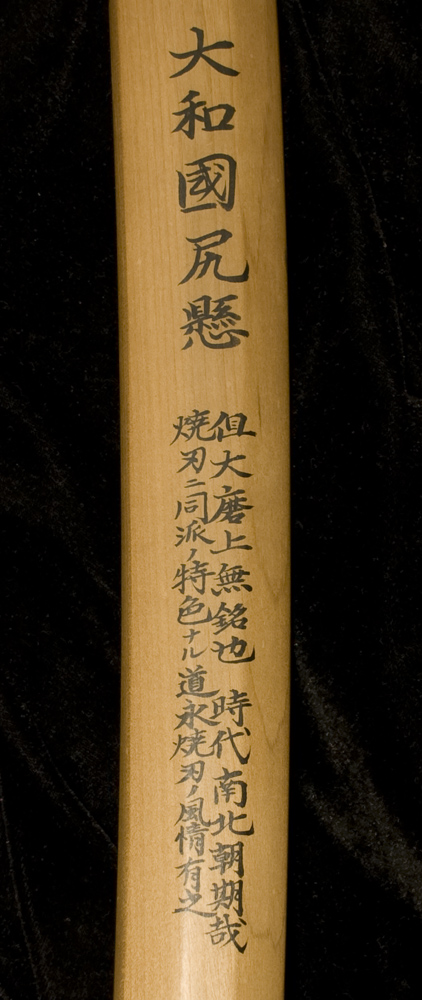 大和國尻懸
但大磨上無銘也 時代南北朝期哉
焼刃ニ同派ノ特色ナル道永焼刃ノ風情有之